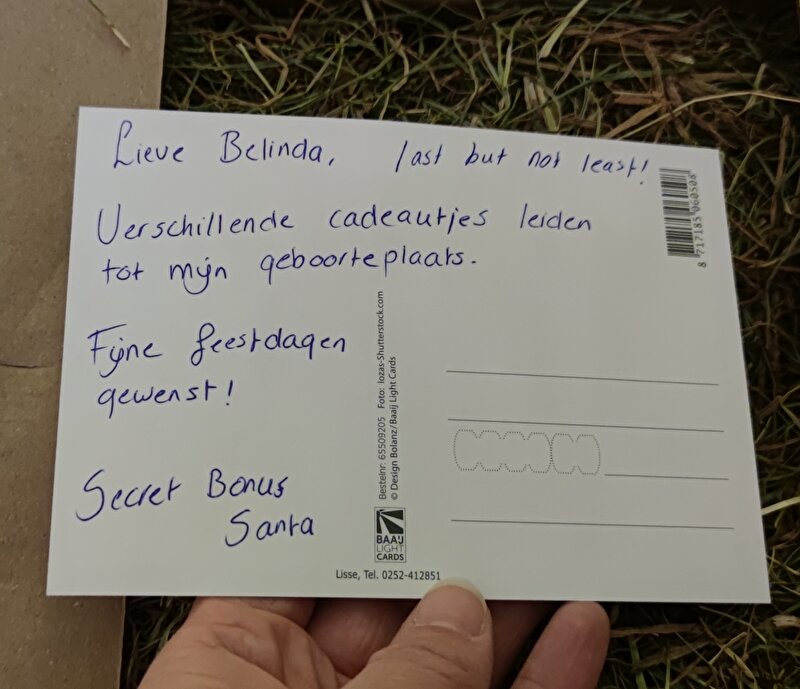 Lieve Belinda, last but not least!
Verschillende cadeautjes leiden
tot mijn geboorteplaats.
Fijne feestdagen
gewenst!
Secret Bonus
Santa
8 717185 060508
Bestelnr: 65509205 Foto: lozas-Shutterstock.com
© Design Bolanz/Baaij Light Cards
BAAIJ
LIGHT
CARDS
Lisse, Tel. 0252-412851